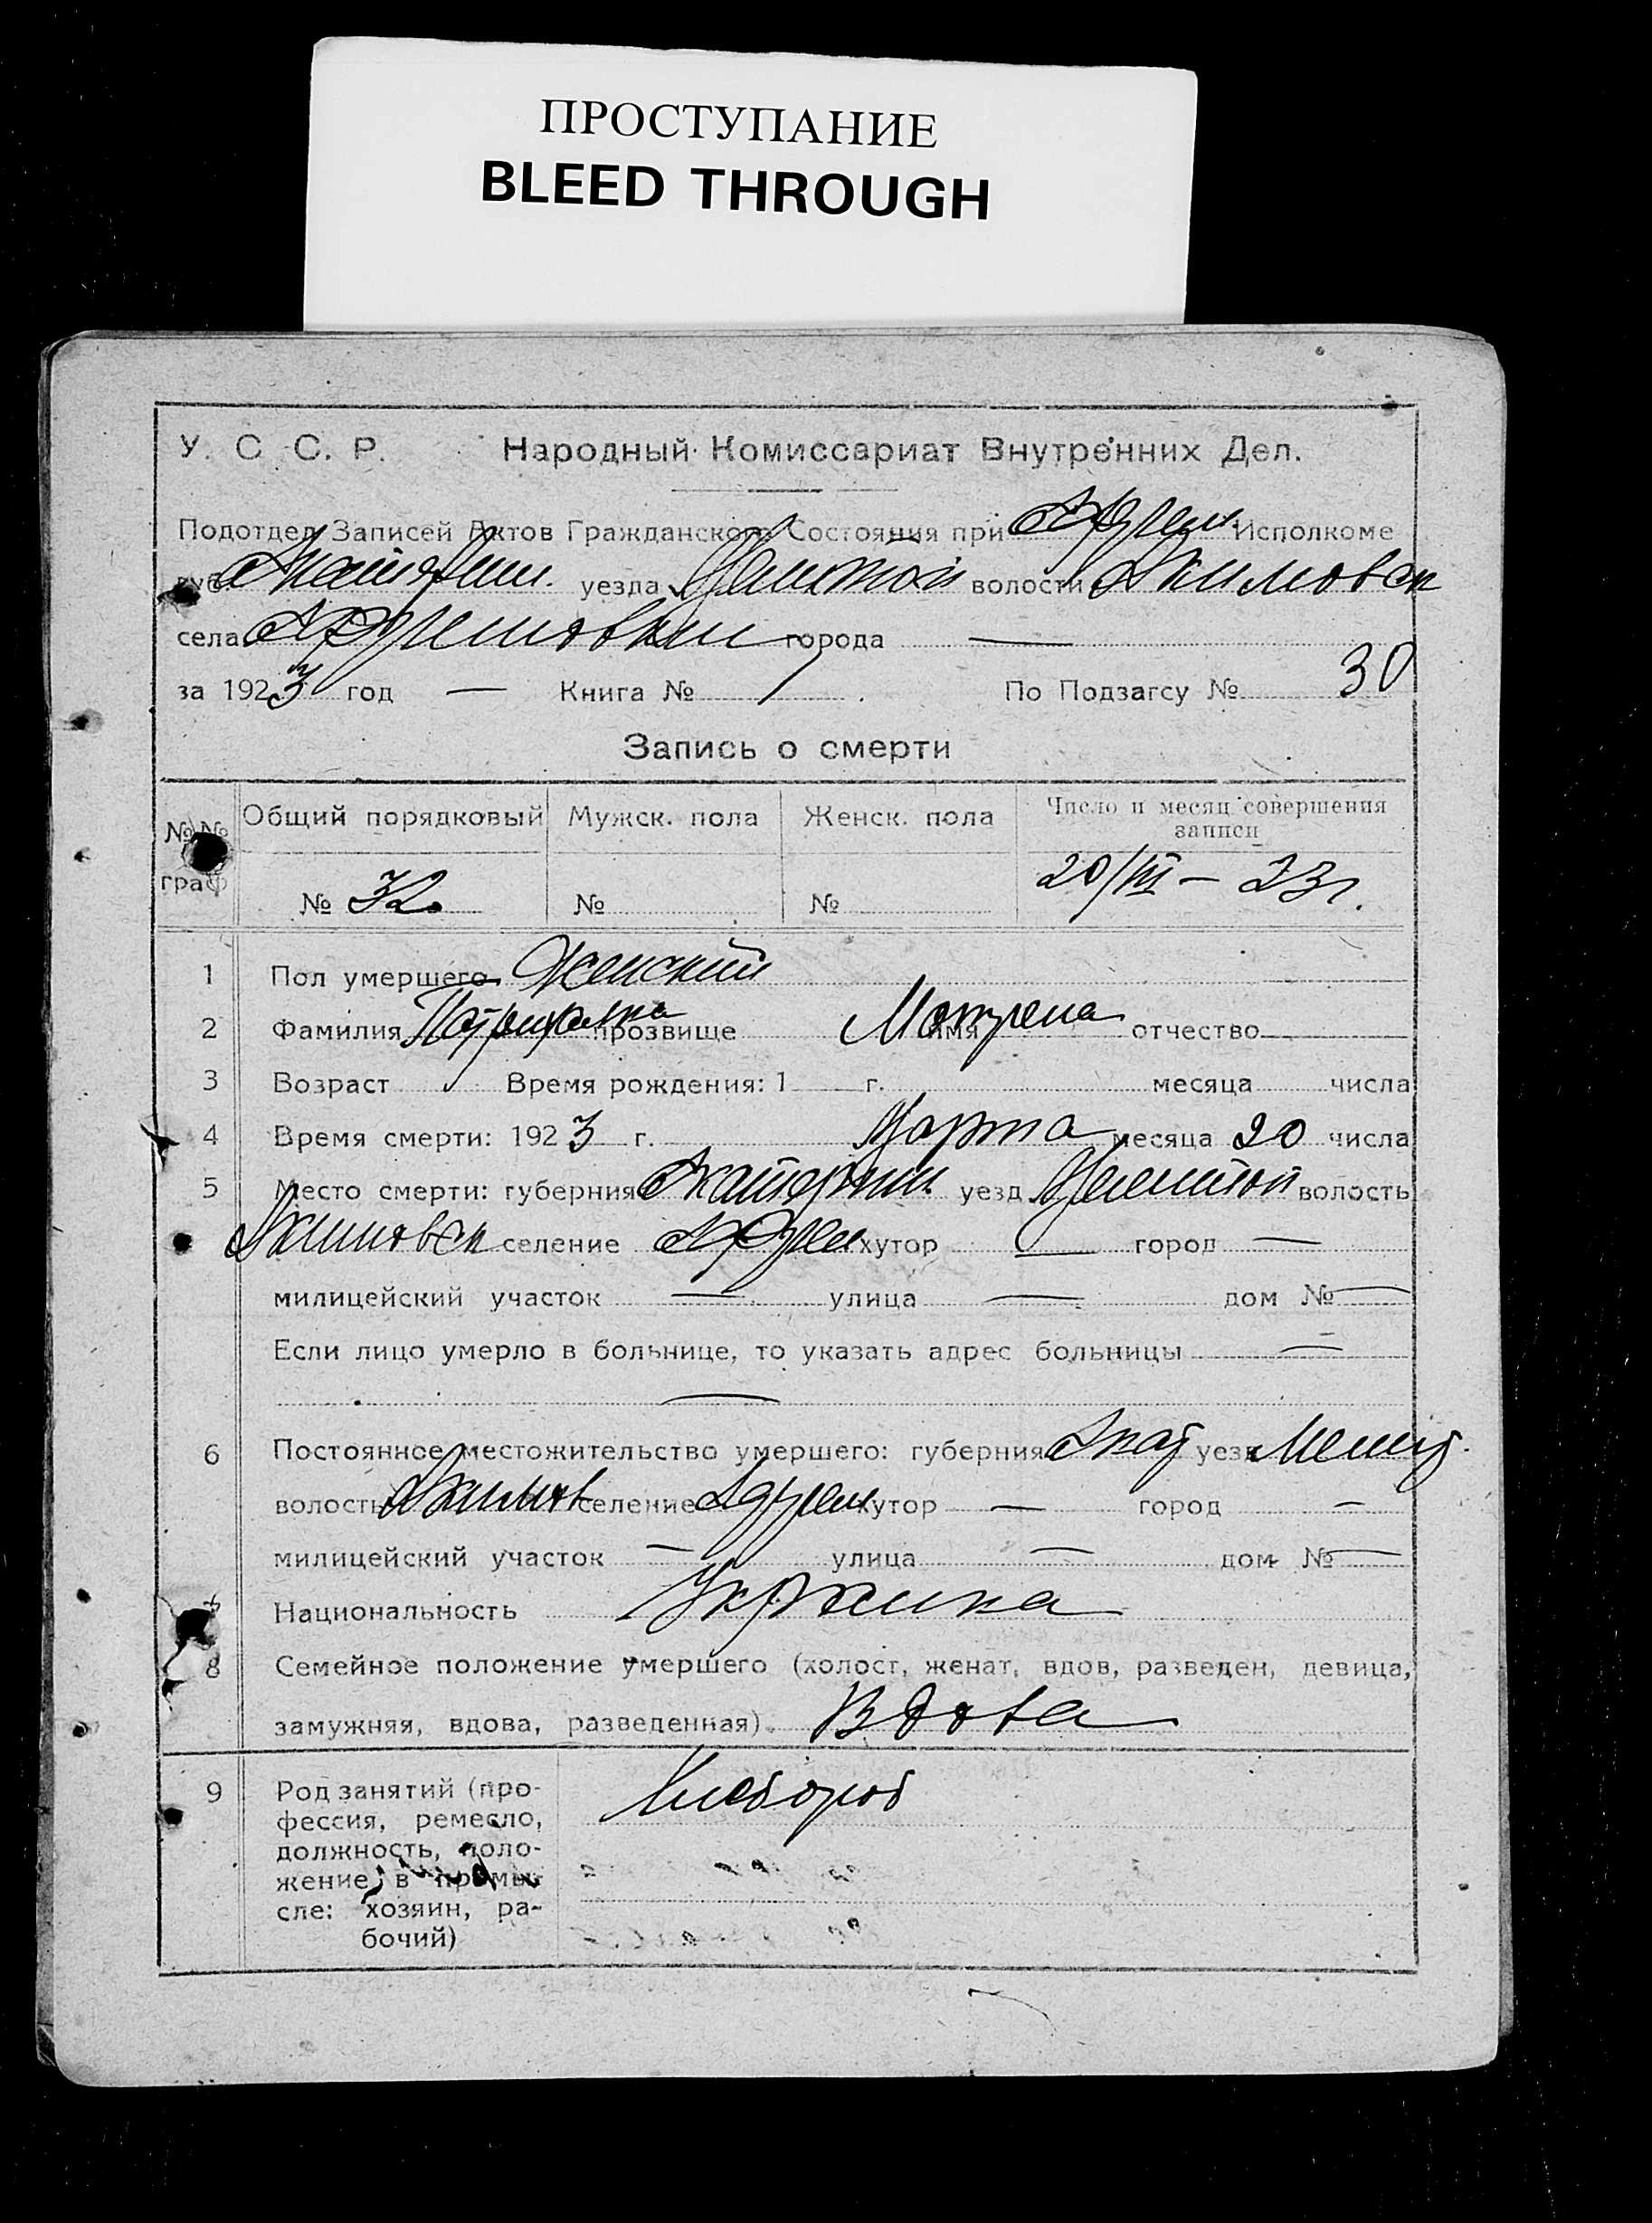 ПРОСТУПАНИЕ
BLEED THROUGH
У. С. С. Р. Народный Комиссариат Внутренних Дел.
Подотдел Записей Актов Гражданского Состояния при Исполкоме
губ. уезда волости Акимовск
села города —
за 1923 год — Книга № 1. По Подзагсу № 30
Запись о смерти
№№ граф
Общий порядковый Мужск. пола Женск. пола Число и месяц совершения записи
№ 32 № № 20/III – 23 г.
1 Пол умершего Женский
2 Фамилия прозвище имя Мотрена отчество
3 Возраст Время рождения: 1 г. месяца числа
4 Время смерти: 1923 г. Марта месяца 20 числа
5 Место смерти: губерния уезд волость
Акимовск селение хутор — город —
милицейский участок — улица — дом № —
Если лицо умерло в больнице, то указать адрес больницы —
—
6 Постоянное местожительство умершего: губерния уезд Мелит.
волость Акимов селение хутор — город —
милицейский участок — улица — дом № —
7 Национальность
8 Семейное положение умершего (холост, женат, вдов, разведен, девица,
замужняя, вдова, разведенная). Вдова
9 Род занятий (про- Хлебороб
фессия, ремесло,
должность, поло-
жение в промы-
сле: хозяин, ра-
бочий)